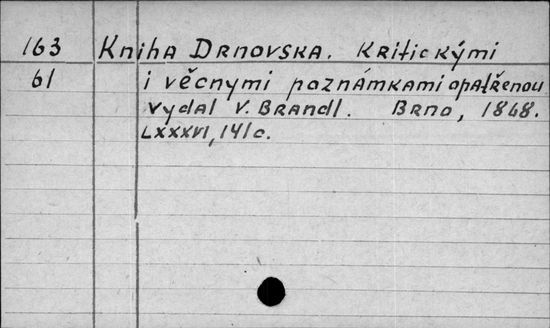 163 Kniha Drnovska. Kritickými
61 i věcnymi poznámkami opatřenou
vydal V. Brandl. Brno, 1868.
LXXXVI, 141 c.